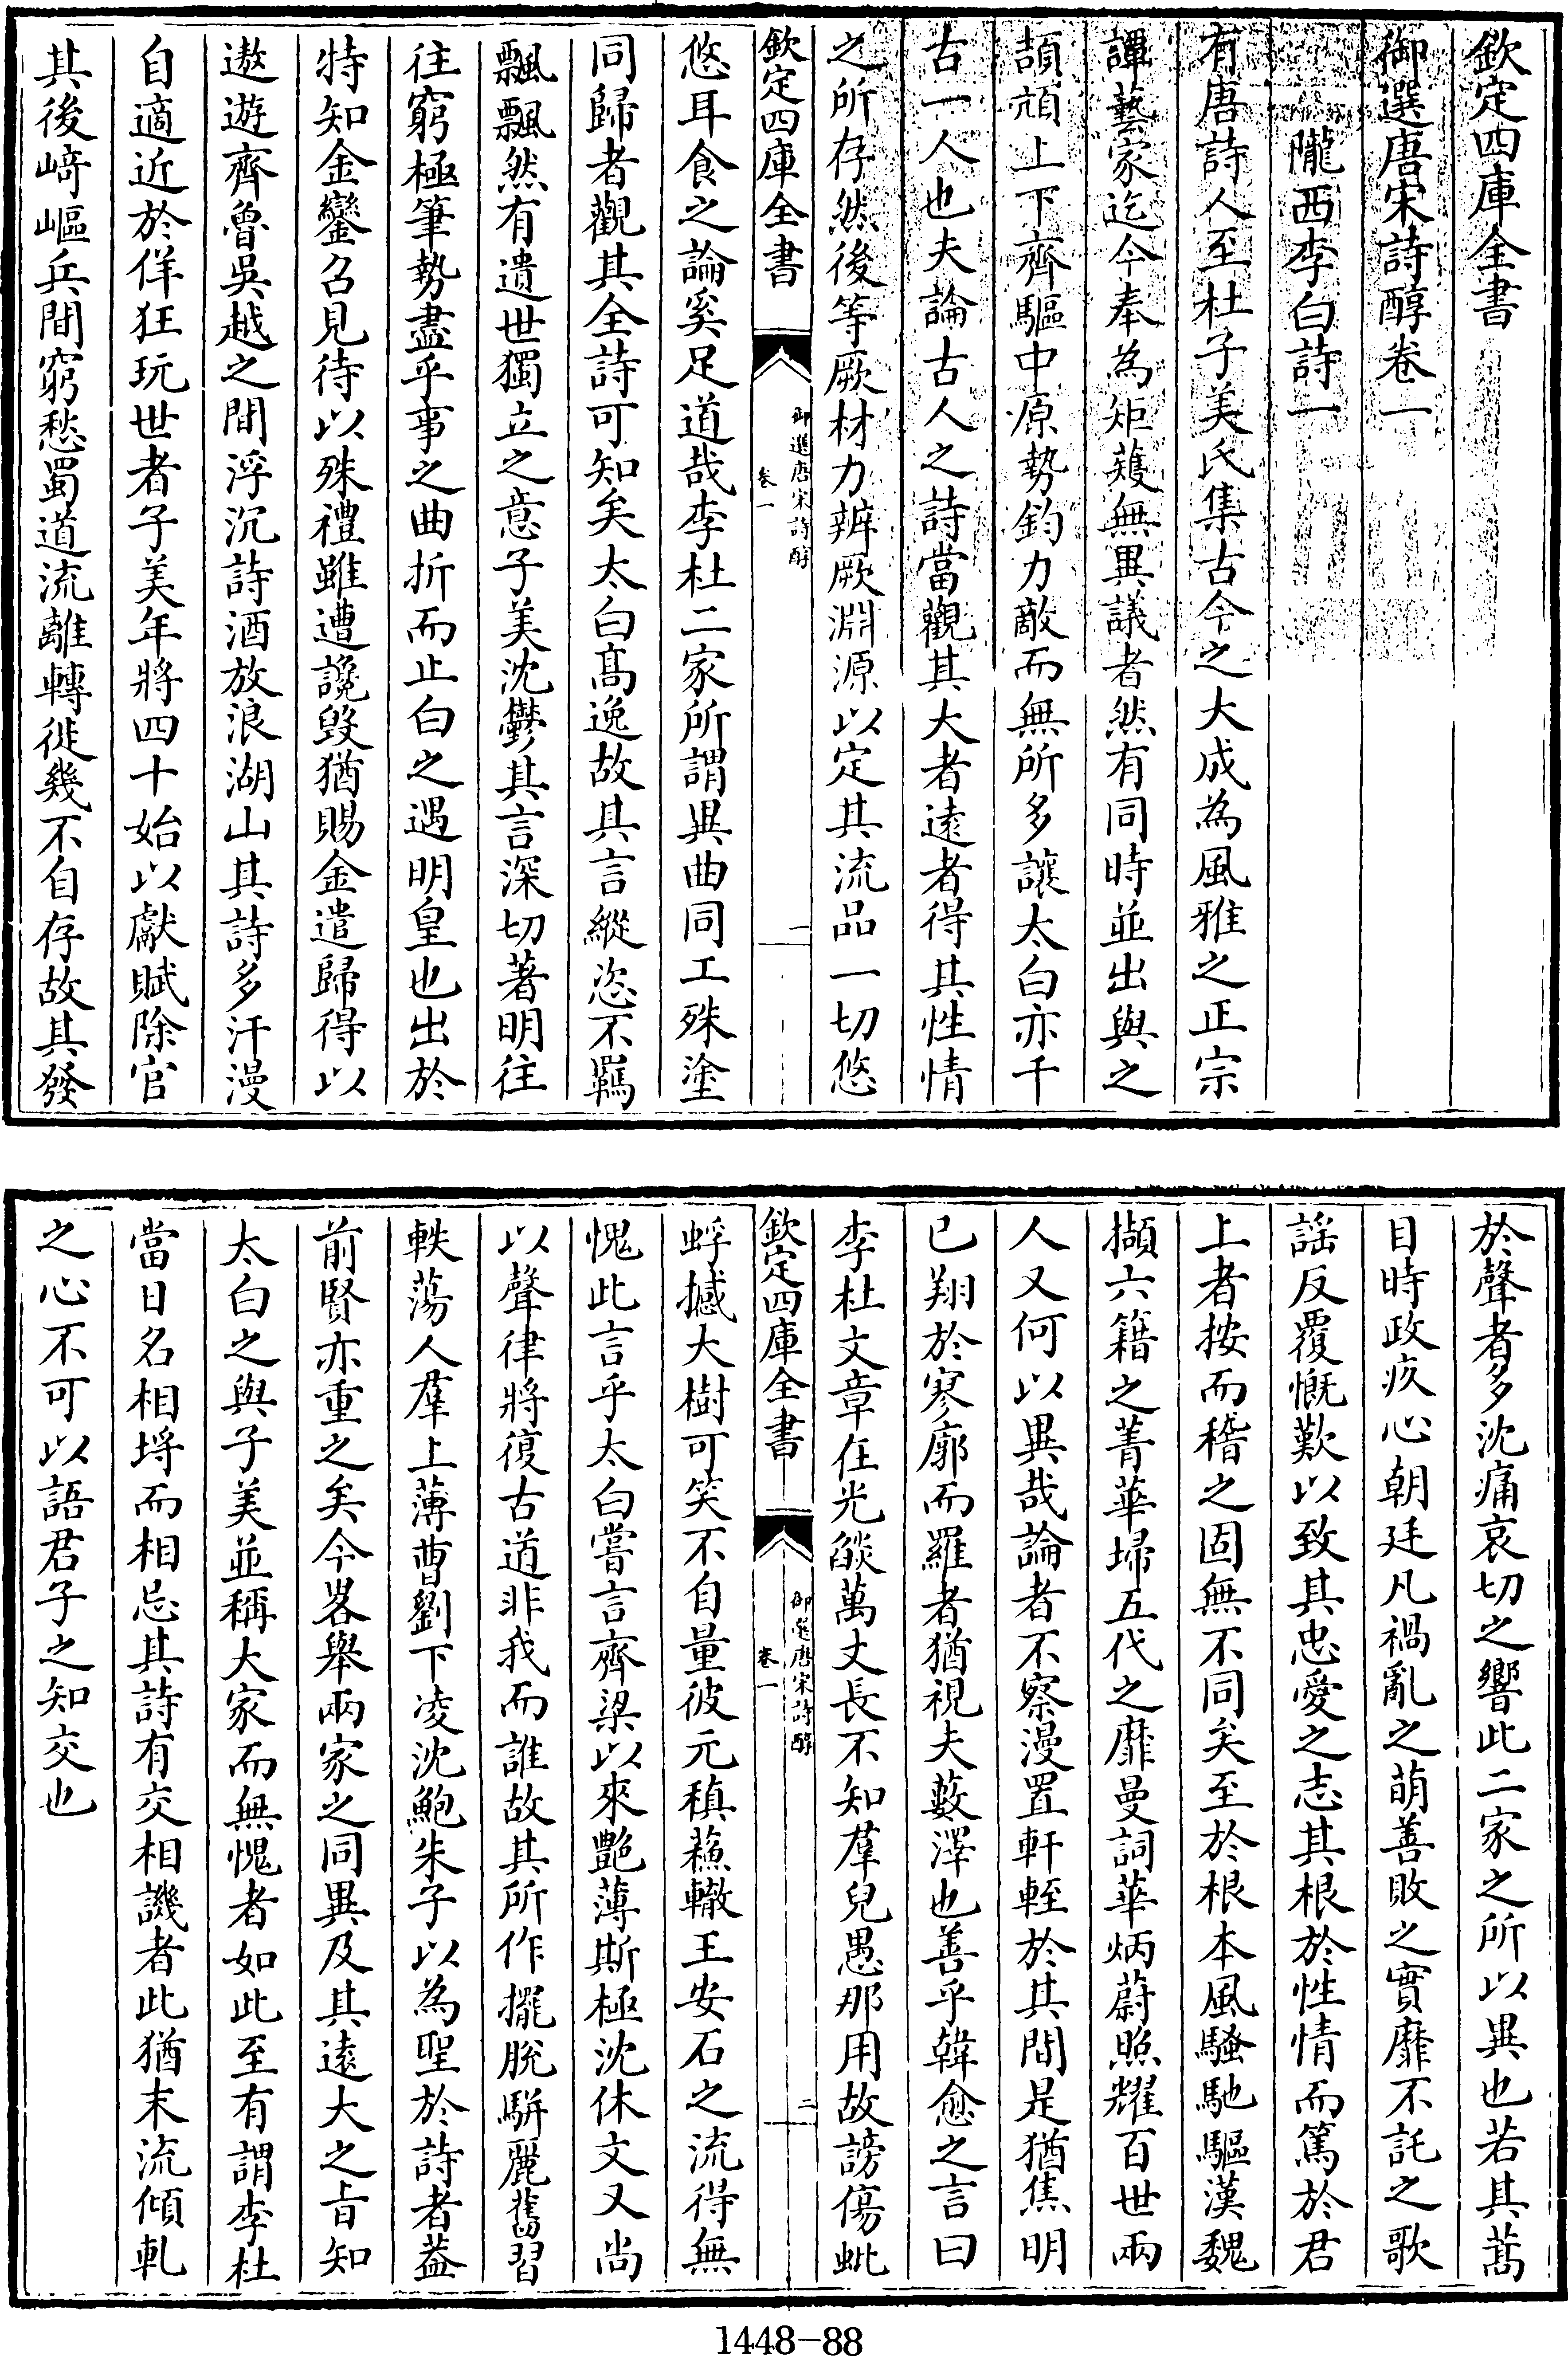 欽定四庫全書
御選唐宋詩醇卷一
隴西李白詩一
有唐詩人至杜子美氏集古今之大成為風雅之正宗
譚藝家迄今奉為矩矱無異議者然有同時並出與之
頡頏上下齊驅中原勢鈞力敵而無所多讓太白亦千
古一人也夫論古人之詩當觀其大者遠者得其性情
之所存然後等厥材力辨厥淵源以定其流品一切悠
欽定四庫全書
御選唐宋詩醇
卷一
一
悠耳食之論奚足道哉李杜二家所謂異曲同工殊塗
同歸者觀其全詩可知矣太白髙逸故其言縱恣不羈
飄飄然有遺世獨立之意子美沈鬱其言深切著明往
往窮極筆勢盡乎事之曲折而止白之遇明皇也出於
特知金鑾召見待以殊禮雖遭讒毁猶賜金遣歸得以
遨遊齊魯吳越之間浮沉詩酒放浪湖山其詩多汗漫
自適近於佯狂玩世者子美年將四十始以獻賦除官
其後﨑嶇兵間窮愁蜀道流離轉徙幾不自存故其發
於聲者多沈痛哀切之響此二家之所以異也若其蒿
目時政疚心朝廷凡禍亂之萌善敗之實靡不託之歌
謡反覆慨歎以致其忠愛之志其根於性情而篤於君
上者按而稽之固無不同矣至於根本風騷馳驅漢魏
擷六籍之菁華埽五代之靡曼詞華炳蔚照耀百世兩
人又何以異哉論者不察漫置軒輊於其間是猶焦明
已翔於寥廓而羅者猶視夫藪澤也善乎韓愈之言曰
李杜文章在光燄萬丈長不知羣兒愚那用故謗傷蚍
欽定四庫全書
御選唐宋詩醇
卷一
二
蜉撼大樹可笑不自量彼元稹蘓轍王安石之流得無
愧此言乎太白嘗言齊梁以來艷薄斯極沈休文又尚
以聲律將復古道非我而誰故其所作擺脫駢麗舊習
軼蕩人羣上薄曹劉下凌沈鮑朱子以為聖於詩者葢
前賢亦重之矣今畧舉兩家之同異及其遠大之旨知
太白之與子美並稱大家而無愧者如此至有謂李杜
當日名相埒而相忌其詩有交相譏者此猶末流傾軋
之心不可以語君子之知交也
1448-88